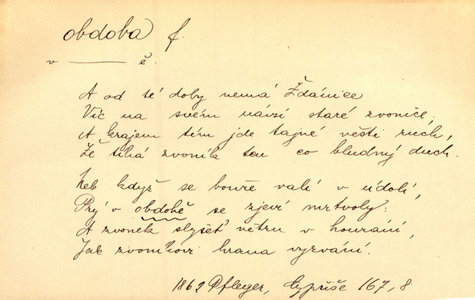 obdoba f.
v ——— ě.
A od té doby nemá Ždánice
Víc na svém návsí staré zvonice,
A krajem tím jde tajné věští ruch,
Že tíhá zvoník ten co bludný duch.
Neb když se bouře valí v údolí,
Prý v obdobě se zjeví mrtvoly.
A zvoněk slyšeť větru v houraní,
Jak zvonkovi hrana vyzvání.
1862 Pfleger, Cypřiše 167, 8